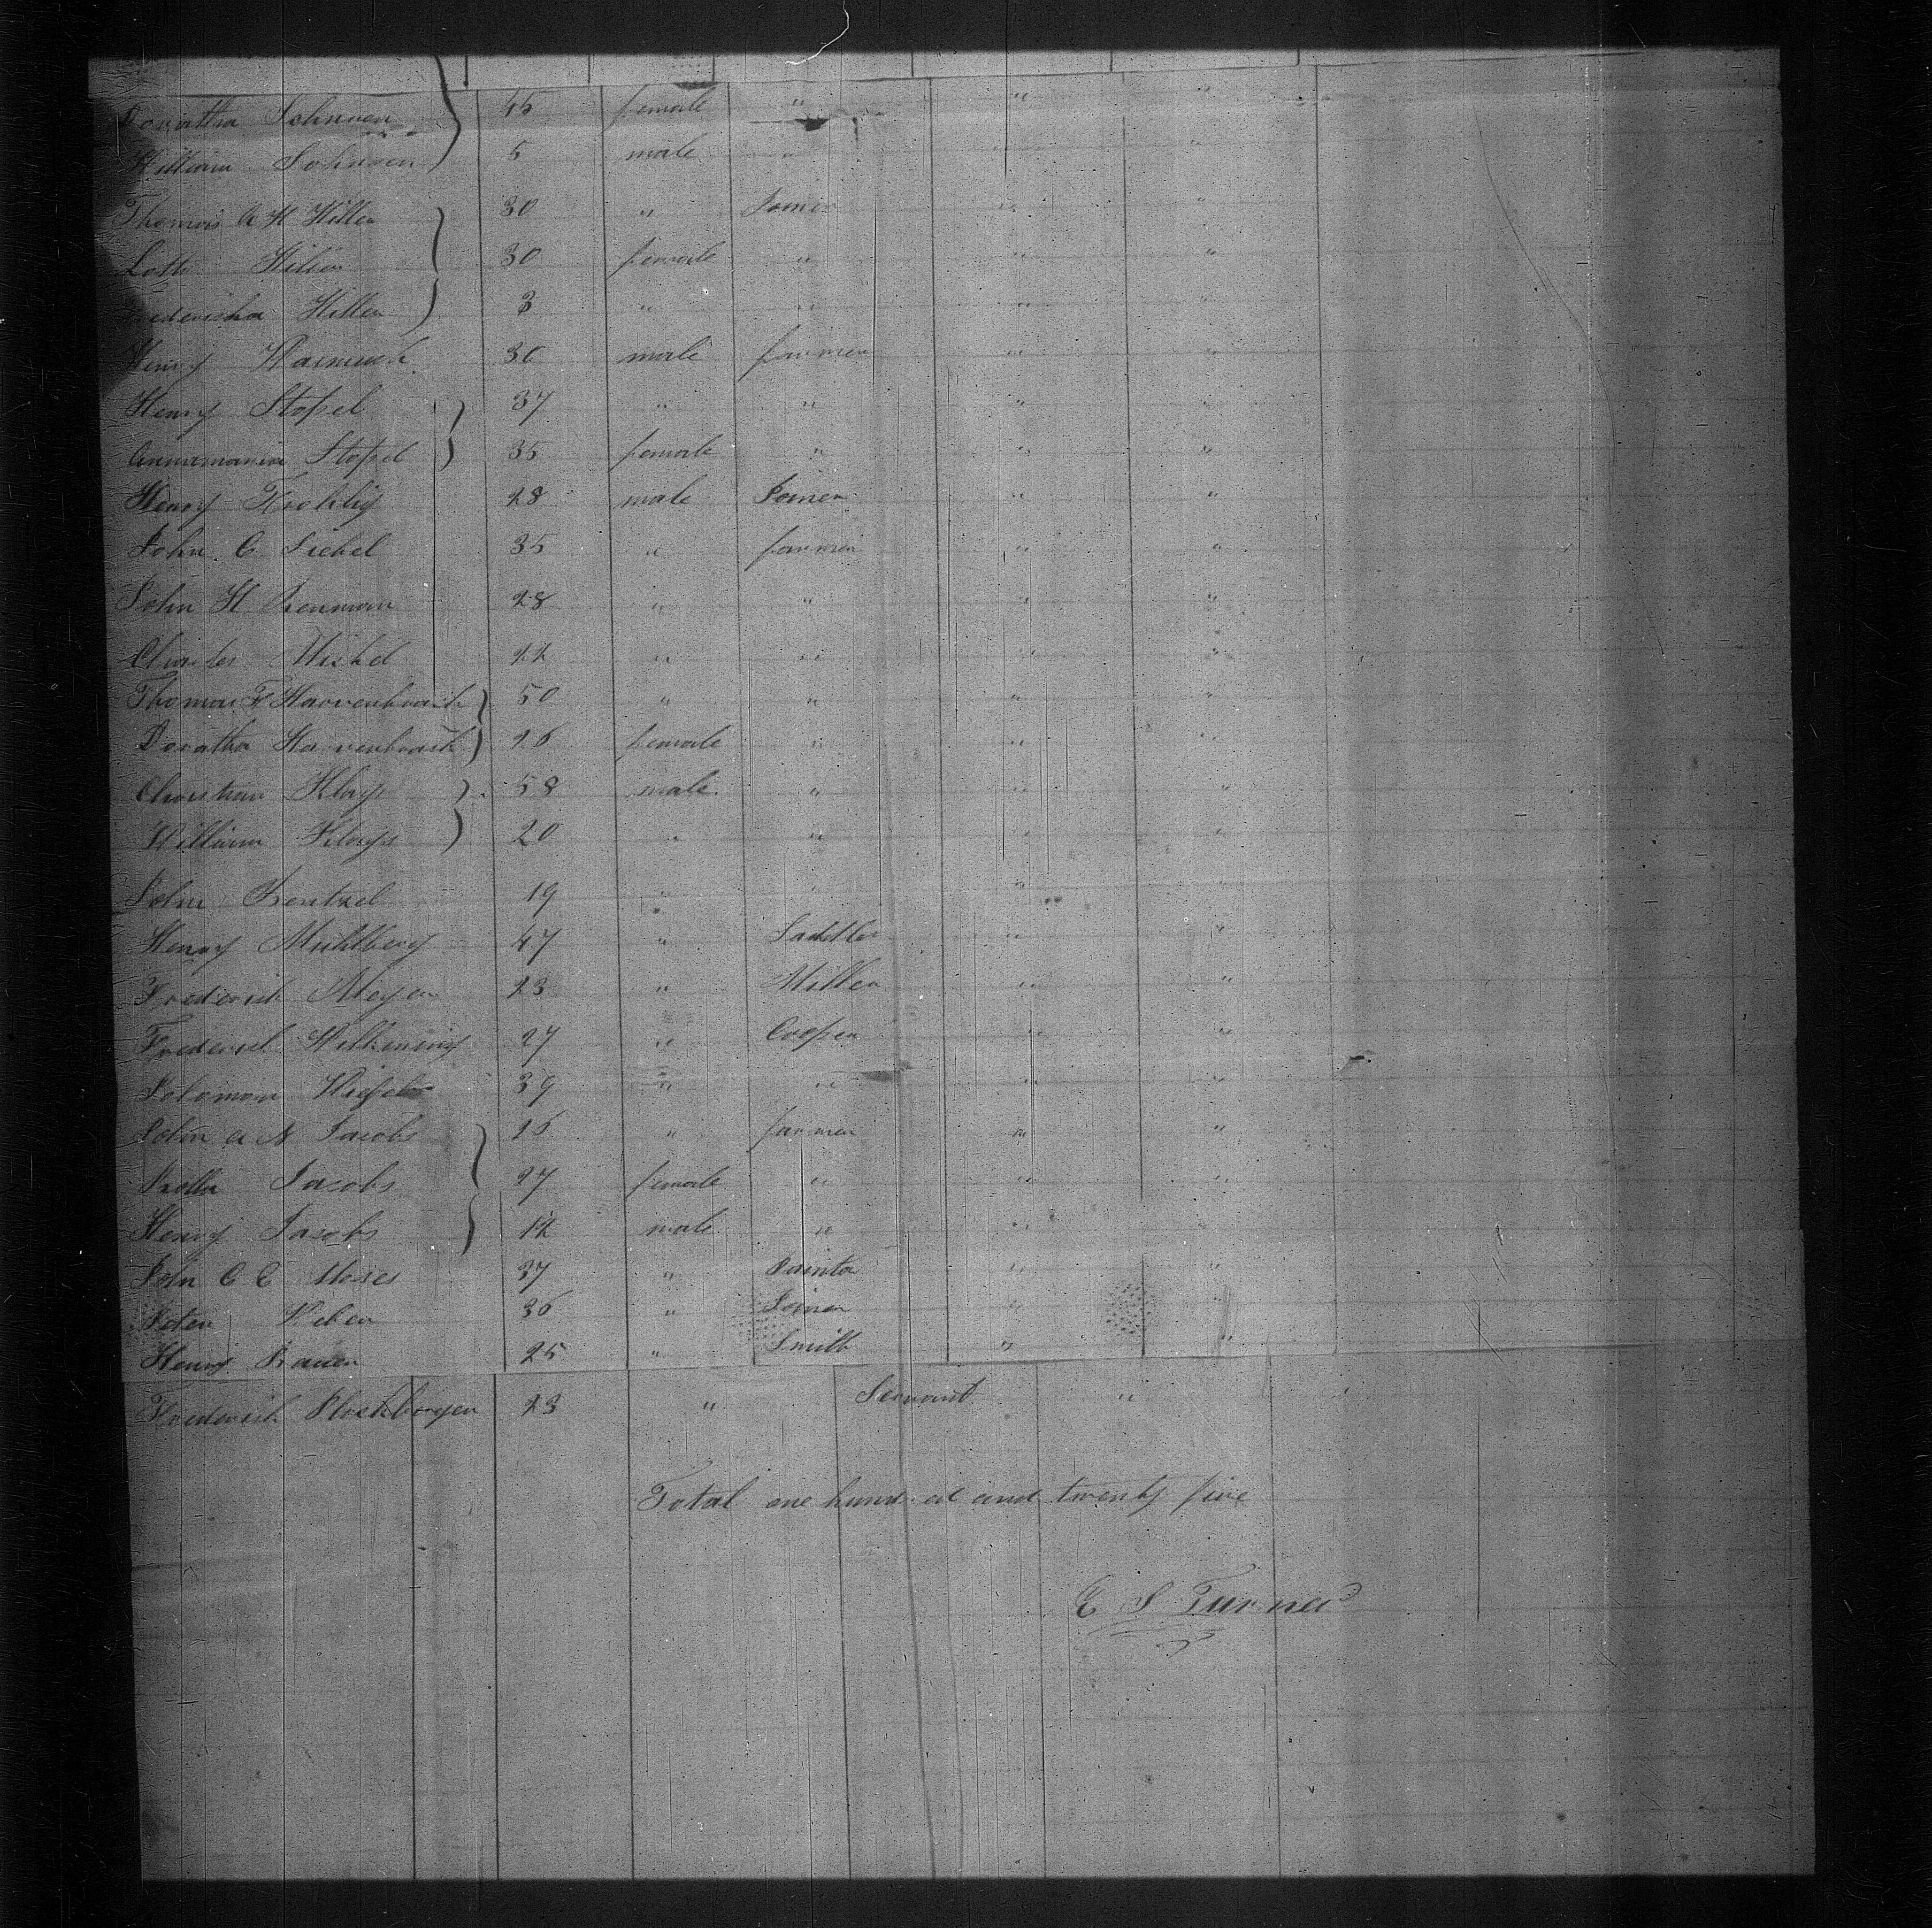 Doratha Johnsen 45 female " " "
William Johnsen 5 male " " "
Thomas A H Hillen 30 " Joiner " "
Loth Hillen 30 female " " "
Frederieka Hillen 3 " " " "
Henry 30 male farmer " "
Henry Stofsel 37 " " " "
Annamaria Stofsel 35 female " " "
Henry Frohlig 28 male Joiner " "
John C Sichel 35 " farmer " "
John H 28 " " " "
Charles Michel 22 " " " "
Thomas F 50 " " " "
Doratha 26 female " " "
Christian Klays 58 male " " "
William Klays 20 " " " "
John 19 " " " "
Henry Muhlberg 47 " Saddler " "
Frederick Meyer 23 " Miller " "
Frederick Wilkening 27 " Cooper " "
Solomon 39 " " " "
John A N Jacobs 26 " farmer " "
Jacobs 27 female " " "
Henry Jacobs 12 male " " "
John C C Moses 37 " Painter " "
Peter Weber 36 " Joiner " "
Henry Bauer 25 " Smith " "
Frederick 23 " Servant "
Total one hundred and twenty five
E S Turner